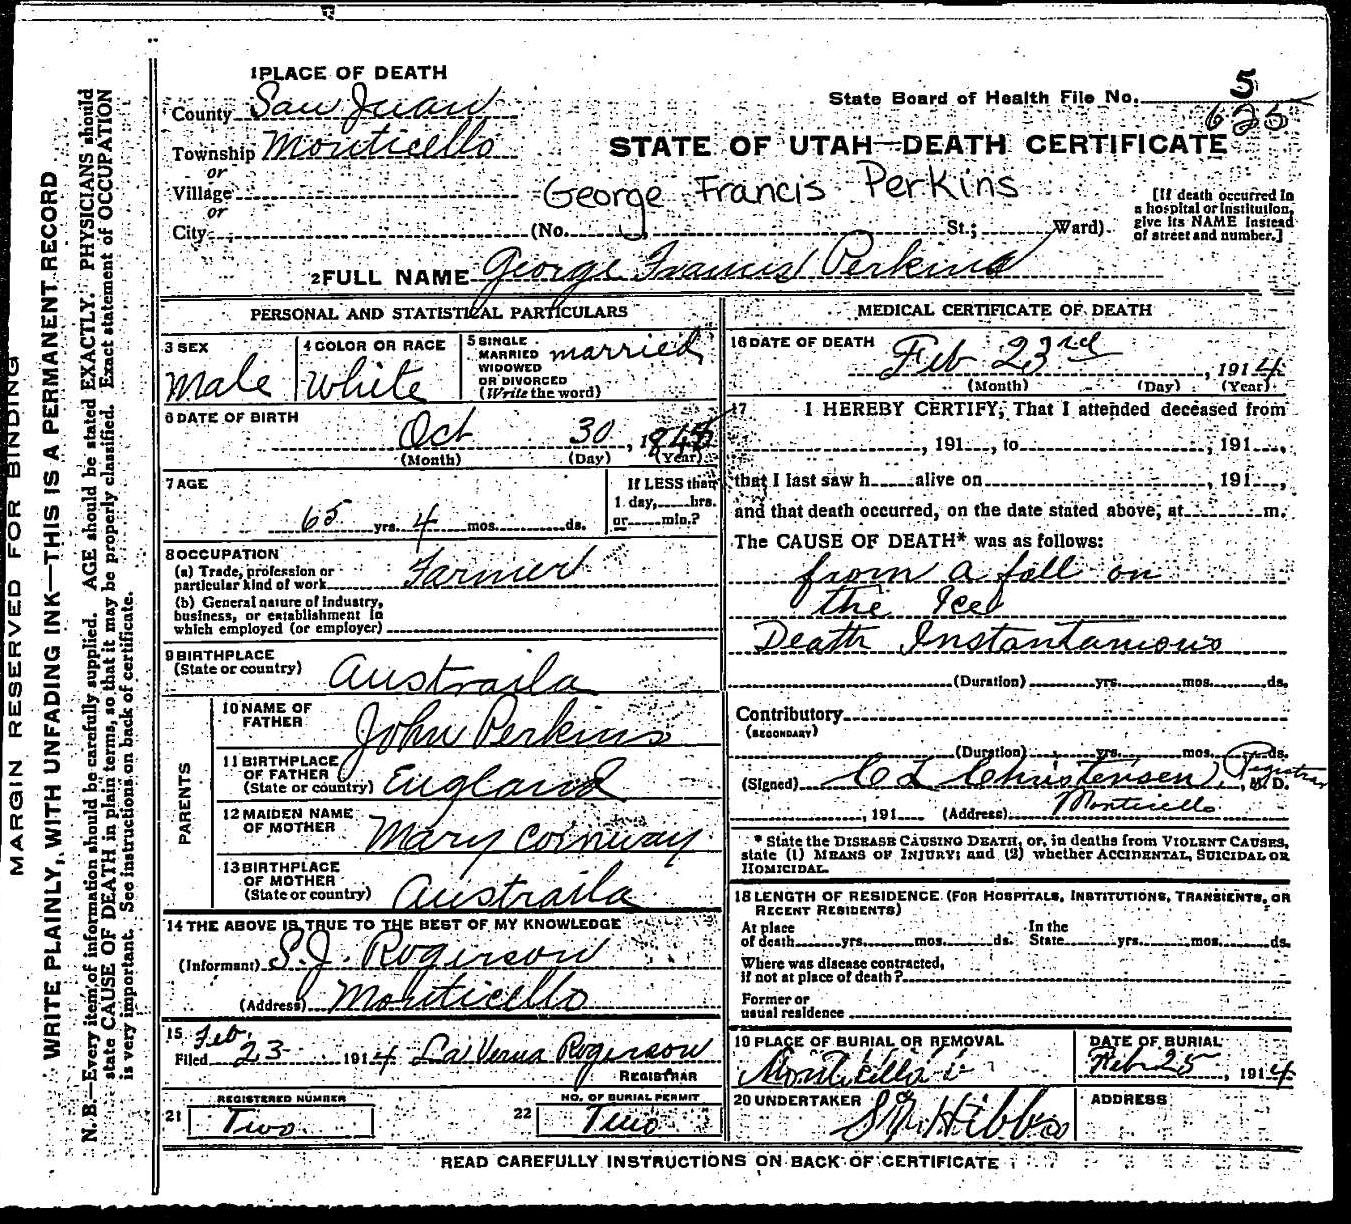 MARGIN RESERVED FOR BINDING
WRITE PLAINLY, WITH UNFADING INK—THIS IS A PERMANENT RECORD
N. B.—Every item of information should be carefully supplied. AGE should be stated EXACTLY. PHYSICIANS should
state CAUSE OF DEATH in plain terms, so that it may be properly classified. Exact statement of OCCUPATION
is very important. See instructions on back of certificate.
1 PLACE OF DEATH
County San Juan
State Board of Health File No. 5
625
Township Monticello
STATE OF UTAH—DEATH CERTIFICATE
or
Village
George Francis Perkins
or
City (No. St.; Ward)
[If death occurred in
a hospital or institution,
give its NAME instead
of street and number.]
2 FULL NAME George Francis Perkins
PERSONAL AND STATISTICAL PARTICULARS
3 SEX
Male
4 COLOR OR RACE
White
5 SINGLE
MARRIED
WIDOWED
OR DIVORCED
(Write the word)
married
6 DATE OF BIRTH
Oct 30, 1848
(Month) (Day) (Year)
7 AGE
65 yrs. 4 mos. ds.
If LESS than
1 day, hrs.
or min.?
8 OCCUPATION
(a) Trade, profession or
particular kind of work Farmer
(b) General nature of industry,
business, or establishment in
which employed (or employer)
9 BIRTHPLACE
(State or country) Austraila
PARENTS
10 NAME OF
FATHER John Perkins
11 BIRTHPLACE
OF FATHER
(State or country) England
12 MAIDEN NAME
OF MOTHER Mary Cornway
13 BIRTHPLACE
OF MOTHER
(State or country) Austraila
14 THE ABOVE IS TRUE TO THE BEST OF MY KNOWLEDGE
(Informant) S.J. Rogerson
(Address) Monticello
15
Filed Feb. 23 1914 La Verna Rogerson
REGISTRAR
21 REGISTERED NUMBER
Two
22 NO. OF BURIAL PERMIT
Two
MEDICAL CERTIFICATE OF DEATH
16 DATE OF DEATH
Feb 23rd, 1914
(Month) (Day) (Year)
17 I HEREBY CERTIFY, That I attended deceased from
, 191 , to , 191 ,
that I last saw h alive on , 191 ,
and that death occurred, on the date stated above, at m.
The CAUSE OF DEATH* was as follows:
from a fall on
the Ice
Death Instantanious
(Duration) yrs. mos. ds.
Contributory
(SECONDARY)
(Duration) yrs. mos. ds.
(Signed) C L Christensen, Registrar, M. D.
, 191 (Address) Monticello
* State the DISEASE CAUSING DEATH, or, in deaths from VIOLENT CAUSES,
state (1) MEANS OF INJURY; and (2) whether ACCIDENTAL, SUICIDAL OR
HOMICIDAL.
18 LENGTH OF RESIDENCE (FOR HOSPITALS, INSTITUTIONS, TRANSIENTS, OR
RECENT RESIDENTS)
At place
of death yrs. mos. ds.
In the
State yrs. mos. ds.
Where was disease contracted,
if not at place of death?
Former or
usual residence
19 PLACE OF BURIAL OR REMOVAL
DATE OF BURIAL
Feb 25, 1914
20 UNDERTAKER
Hibbs
ADDRESS
READ CAREFULLY INSTRUCTIONS ON BACK OF CERTIFICATE